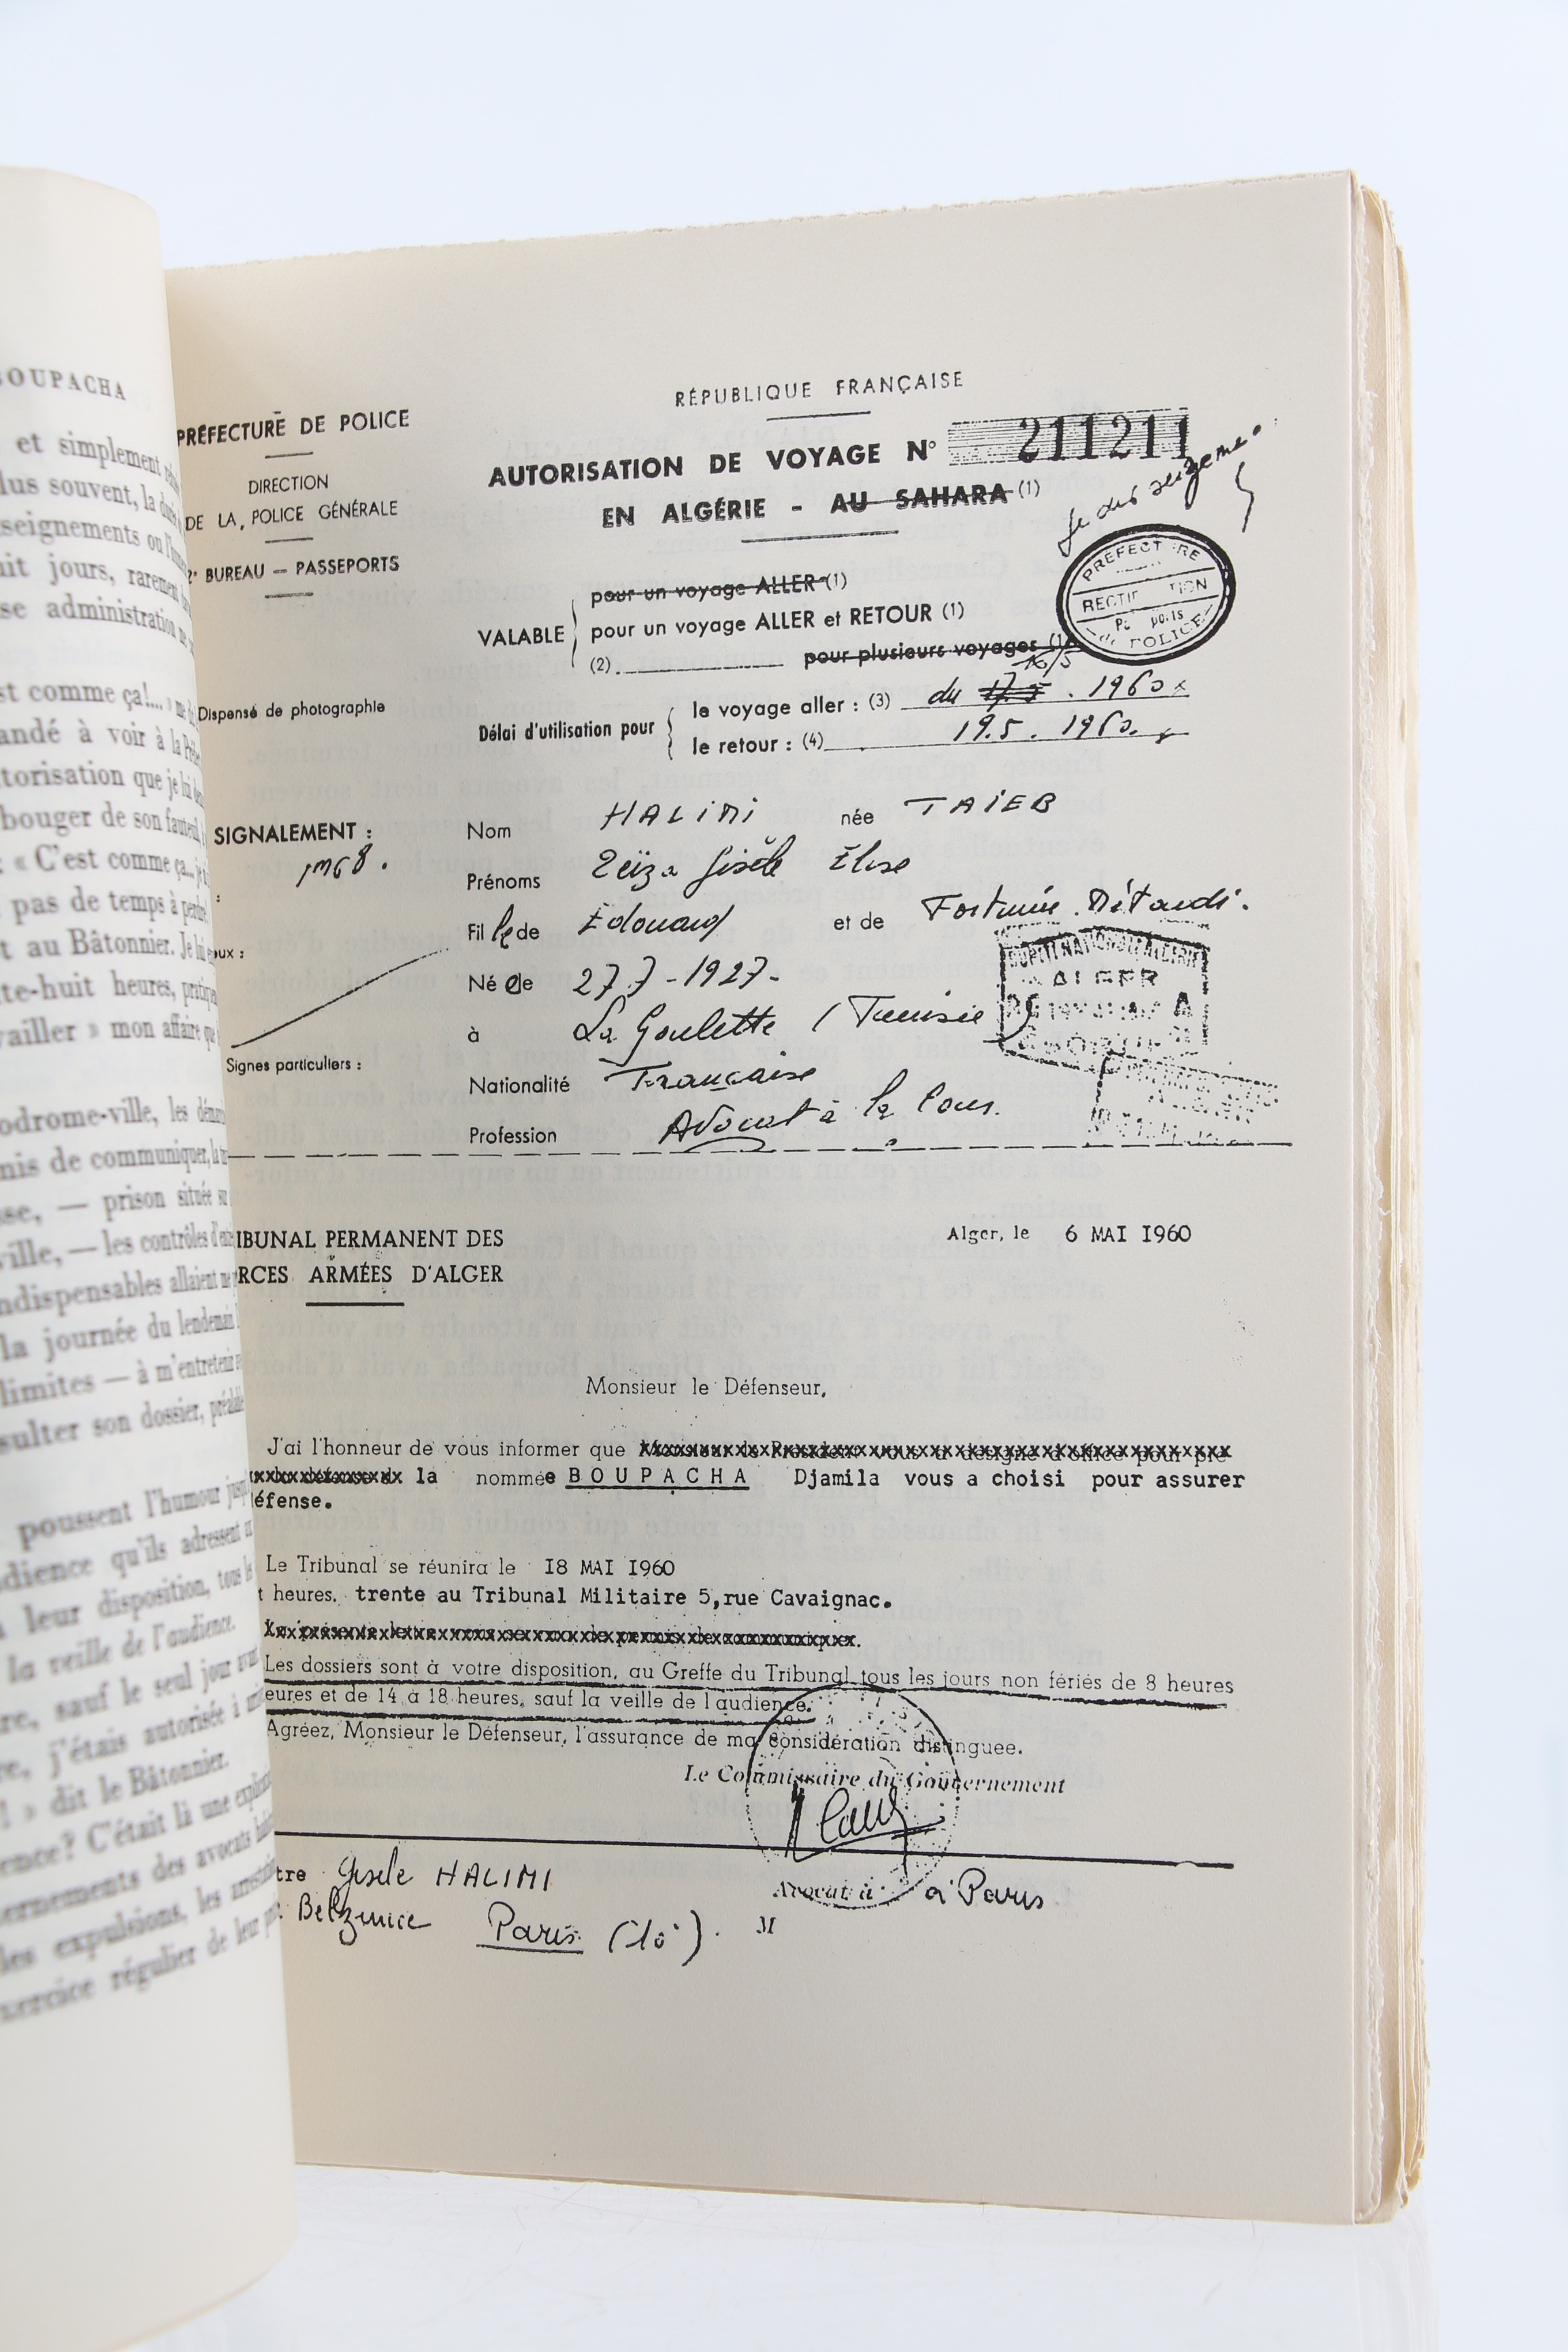 BOUPACHA
et simplement
plus souvent, la
seignements ou
jours, rarement
administration
st comme ça!... »
andé à voir à la
torisation que je lui
bouger de son fauteuil
« C'est comme ça...
pas de temps à perdre
t au Bâtonnier. Je lui
te-huit heures,
vailler » mon affaire que
odrome-ville, les
mis de communiquer, la
se, — prison située
ville, — les contrôles
ndispensables allaient
la journée du lendemain
limites — à m'entretenir
sulter son dossier,
poussent l'humour
dience qu'ils adressent
leur disposition, tous les
la veille de l'audience.
re, sauf le seul jour
re, j'étais autorisée à
! » dit le Bâtonnier.
ence? C'était là une
ernements des avocats
les expulsions, les
xercice régulier de leur
PRÉFECTURE DE POLICE
DIRECTION
DE LA POLICE GÉNÉRALE
2e BUREAU — PASSEPORTS
RÉPUBLIQUE FRANÇAISE
AUTORISATION DE VOYAGE N° 211211
EN ALGÉRIE - AU SAHARA (1)
PRÉFECTURE
POLICE
VALABLE
pour un voyage ALLER (1)
pour un voyage ALLER et RETOUR (1)
(2) pour plusieurs voyages (1)
16/5
Dispensé de photographie
Délai d'utilisation pour
le voyage aller : (3) du 17.5 . 1960
le retour : (4) 19.5. 1960.
SIGNALEMENT :
1m68.
Nom HALIMI née TAIEB
Prénoms Zeïza Gisèle Élise
Fille de Edouard et de Fortunée
Née le 27.7-1927-
à La Goulette (Tunisie)
Signes particuliers :
Nationalité Française
Profession Avocat à la Cour.
ALGER
IBUNAL PERMANENT DES
RCES ARMÉES D'ALGER
Alger, le 6 MAI 1960
Monsieur le Défenseur,
J'ai l'honneur de vous informer que Monsieur le Président vous a désigné d'office pour
la nommée BOUPACHA Djamila vous a choisi pour assurer
défense.
Le Tribunal se réunira le 18 MAI 1960
t heures. trente au Tribunal Militaire 5,rue Cavaignac.
Les dossiers sont à votre disposition, au Greffe du Tribunal tous les jours non fériés de 8 heures
eures et de 14 à 18 heures, sauf la veille de l'audience.
Agréez, Monsieur le Défenseur, l'assurance de ma considération distinguée.
Le Commissaire du Gouvernement
tre Gisele HALIMI
Avocat à à Paris
Belzunce Paris (10°).
M